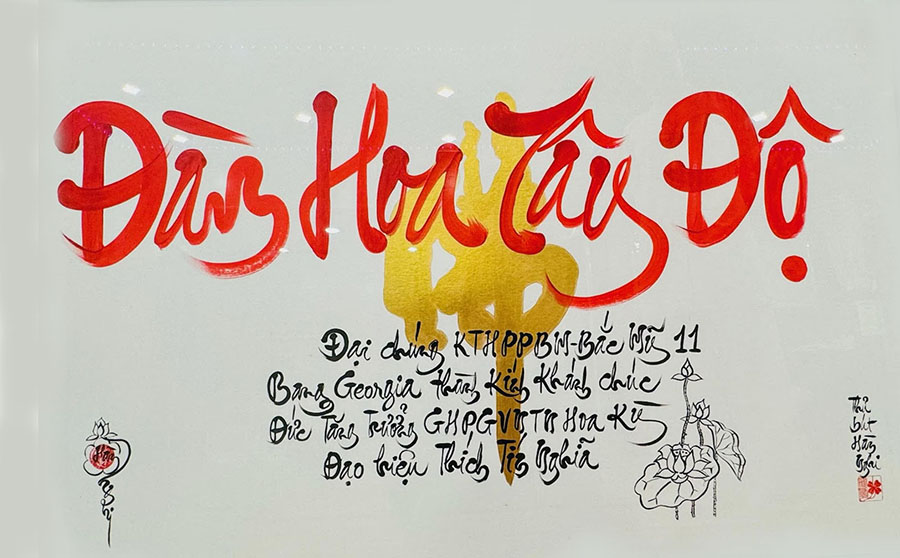 Đàm Hoa Tây Độ
Đại chúng KTHPPBN-Bắc Mỹ 11
Bang Georgia thành Kính Khánh chúc
Đức Tăng Trưởng GHPGVNTN Hoa Kỳ
Đạo hiệu Thích Tín Nghĩa
Thủ bút